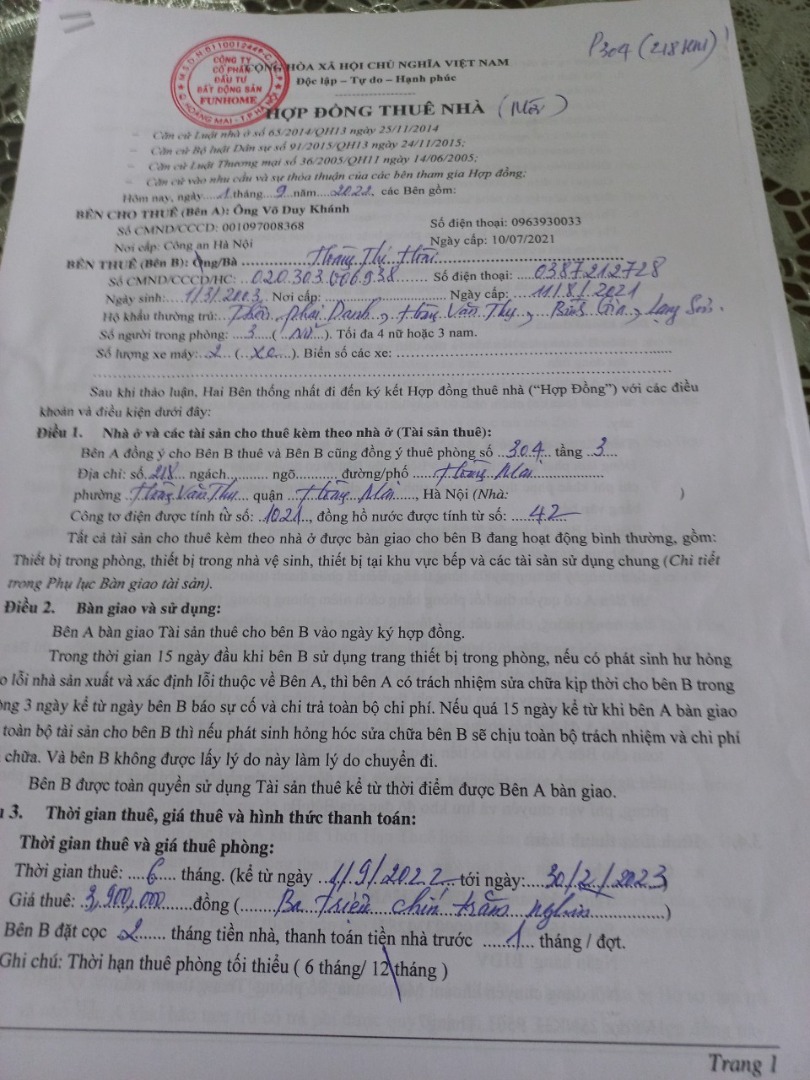 P304 (218 HM)
M.S.D.N: 0110012449-C.T.C.P
CÔNG TY
CỔ PHẦN
ĐẦU TƯ
BẤT ĐỘNG SẢN
FUNHOME
Q. HOÀNG MAI - T.P HÀ NỘI
CỘNG HÒA XÃ HỘI CHỦ NGHĨA VIỆT NAM
Độc lập – Tự do – Hạnh phúc
HỢP ĐỒNG THUÊ NHÀ (Mới)
– Căn cứ Luật nhà ở số 65/2014/QH13 ngày 25/11/2014
– Căn cứ Bộ luật Dân sự số 91/2015/QH13 ngày 24/11/2015;
– Căn cứ Luật Thương mại số 36/2005/QH11 ngày 14/06/2005;
– Căn cứ vào nhu cầu và sự thỏa thuận của các bên tham gia Hợp đồng;
Hôm nay, ngày....1.tháng...9...năm....2022, các Bên gồm:
BÊN CHO THUÊ (Bên A): Ông Võ Duy Khánh
Số CMND/CCCD: 001097008368 Số điện thoại: 0963930033
Nơi cấp: Công an Hà Nội Ngày cấp: 10/07/2021
BÊN THUÊ (Bên B): Ông/Bà ............Hoàng Thị Hoài............
Số CMND/CCCD/HC: ..020.303.006938........ Số điện thoại: ....0387212728
Ngày sinh:....1/3/2003. Nơi cấp: ............................ Ngày cấp: ....11/8/2021
Hộ khẩu thường trú: Hoàng Văn Thụ, Bình Gia, Lạng Sơn.
Số người trong phòng: ....3.....( ..Nữ...). Tối đa 4 nữ hoặc 3 nam.
Số lượng xe máy:..2... (..xe....). Biển số các xe: ..............................
Sau khi thảo luận, Hai Bên thống nhất đi đến ký kết Hợp đồng thuê nhà (“Hợp Đồng”) với các điều
khoản và điều kiện dưới đây:
Điều 1. Nhà ở và các tài sản cho thuê kèm theo nhà ở (Tài sản thuê):
Bên A đồng ý cho Bên B thuê và Bên B cũng đồng ý thuê phòng số ..304.. tầng ..3....
Địa chỉ: số.218... ngách........... ngõ........... đường/phố .....Hoàng Mai..................
phường ..Hoàng Văn Thụ... quận ..Hoàng Mai......, Hà Nội (Nhà: )
Công tơ điện được tính từ số: .1021.., đồng hồ nước được tính từ số: .......42
Tất cả tài sản cho thuê kèm theo nhà ở được bàn giao cho bên B đang hoạt động bình thường, gồm:
Thiết bị trong phòng, thiết bị trong nhà vệ sinh, thiết bị tại khu vực bếp và các tài sản sử dụng chung (Chi tiết
trong Phụ lục Bàn giao tài sản).
Điều 2. Bàn giao và sử dụng:
Bên A bàn giao Tài sản thuê cho bên B vào ngày ký hợp đồng.
Trong thời gian 15 ngày đầu khi bên B sử dụng trang thiết bị trong phòng, nếu có phát sinh hư hỏng
o lỗi nhà sản xuất và xác định lỗi thuộc về Bên A, thì bên A có trách nhiệm sửa chữa kịp thời cho bên B trong
òng 3 ngày kể từ ngày bên B báo sự cố và chi trả toàn bộ chi phí. Nếu quá 15 ngày kể từ khi bên A bàn giao
toàn bộ tài sản cho bên B thì nếu phát sinh hỏng hóc sửa chữa bên B sẽ chịu toàn bộ trách nhiệm và chi phí
chữa. Và bên B không được lấy lý do này làm lý do chuyển đi.
Bên B được toàn quyền sử dụng Tài sản thuê kể từ thời điểm được Bên A bàn giao.
u 3. Thời gian thuê, giá thuê và hình thức thanh toán:
Thời gian thuê và giá thuê phòng:
Thời gian thuê: ....6.... tháng. (kể từ ngày ..1/9/2022.. tới ngày:....30/2/2023
Giá thuê: .3,900,000.......đồng (........Ba triệu chín trăm nghìn..............)
Bên B đặt cọc ..2...... tháng tiền nhà, thanh toán tiền nhà trước ......1.... tháng / đợt.
Ghi chú: Thời hạn thuê phòng tối thiểu ( 6 tháng/ 12 tháng )
Trang 1